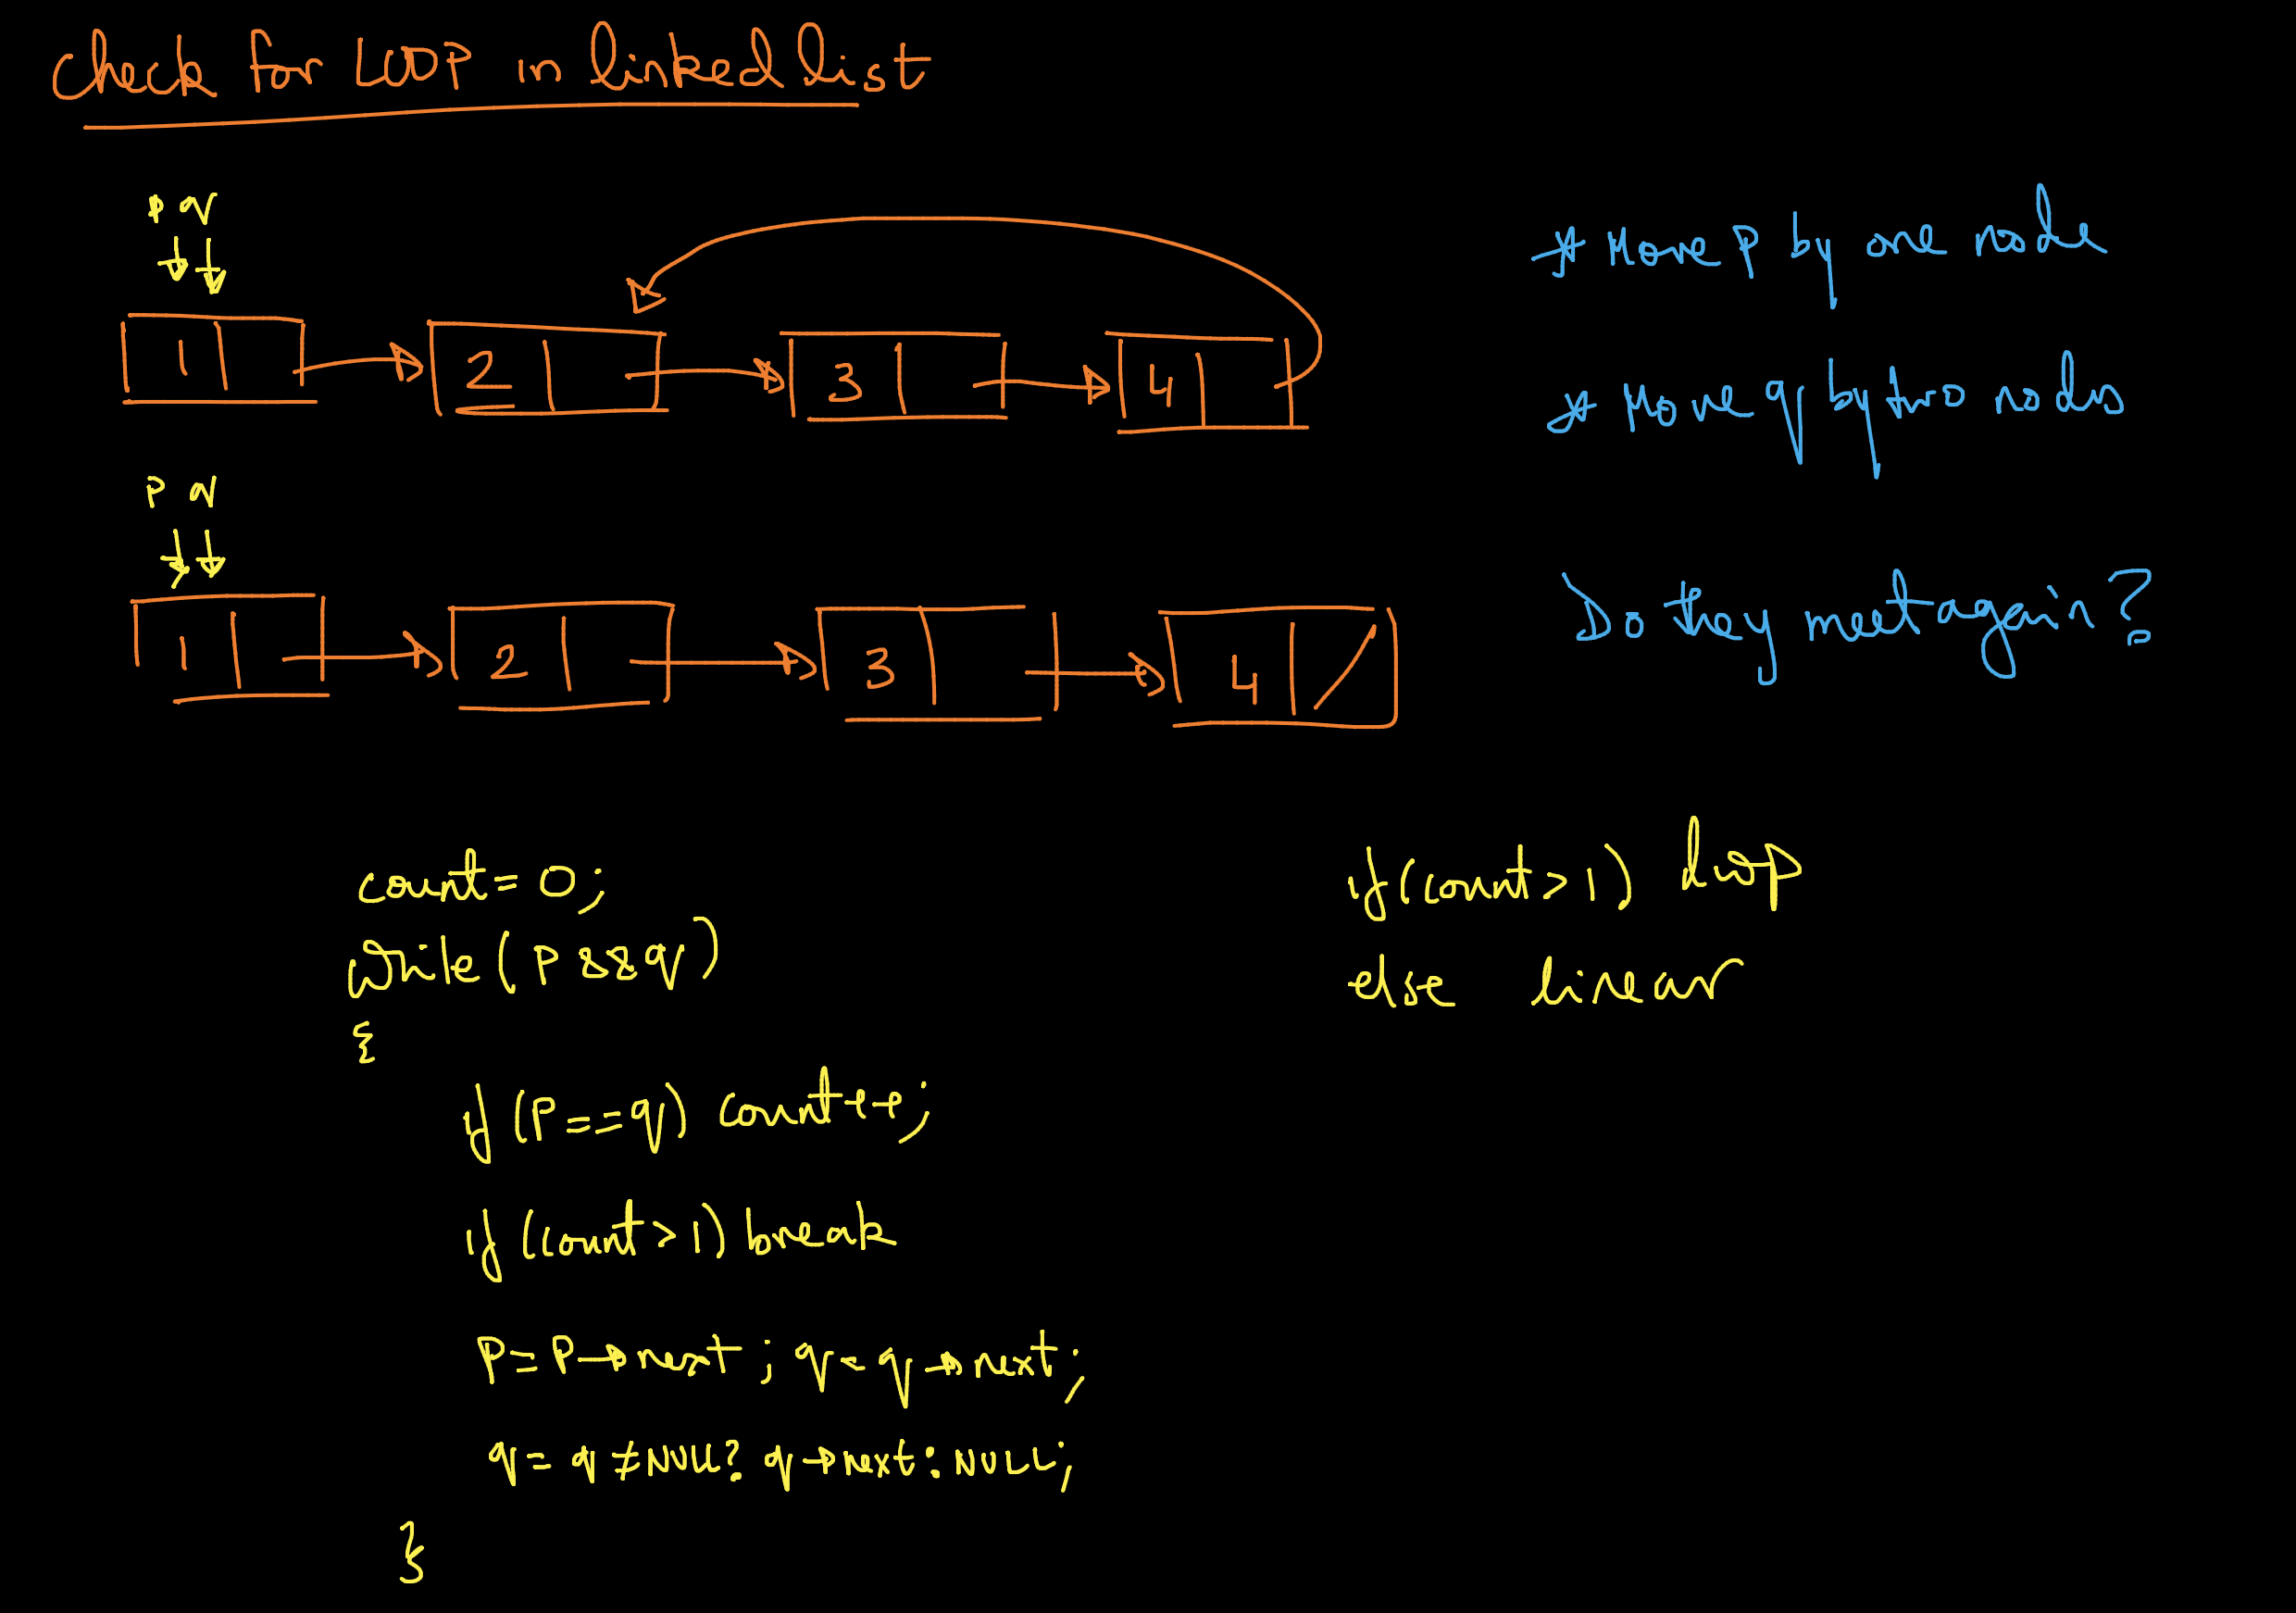 Check for LOOP in linked list
p q
1 2 3 4
* Move P by one node
* Move q by two nodes
P q
1 2 3 4
Do they meet again?
count = 0;
while (P && q)
{
if (P == q) count++;
if (count > 1) break
P = P → next ; q = q → next;
q = q ≠ NULL? q → next : NULL;
}
if (count > 1) loop
else linear